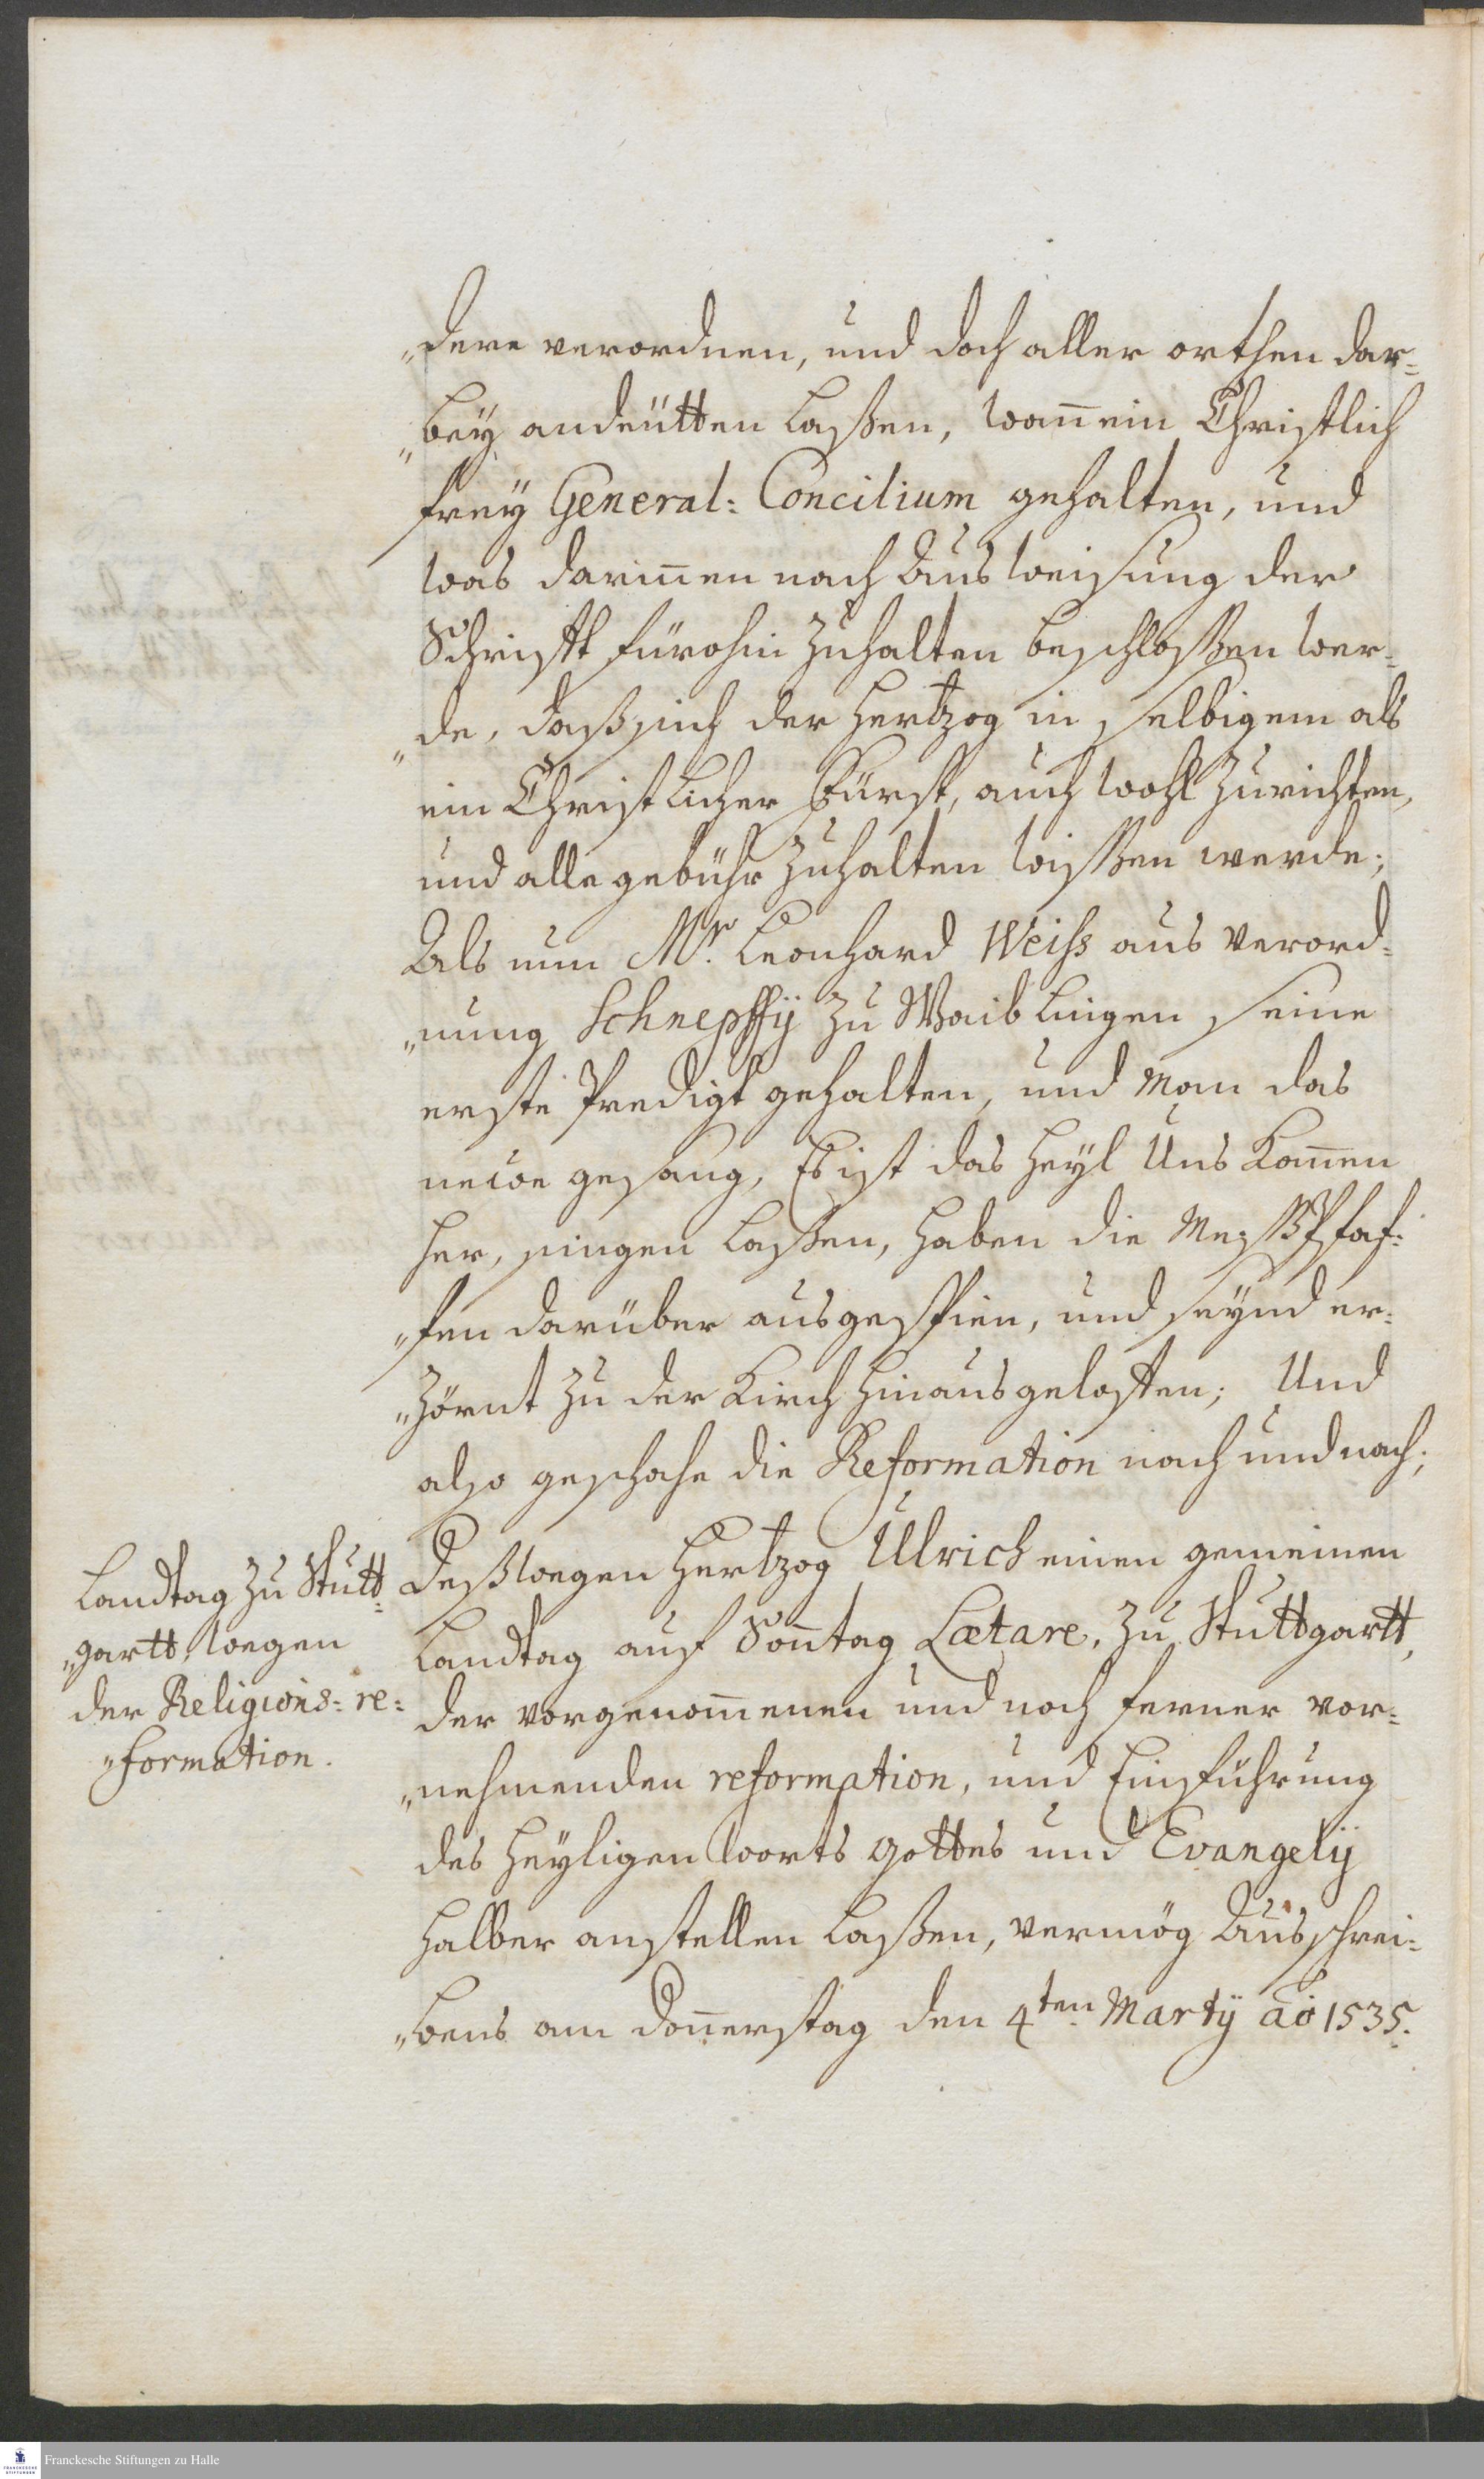 „dere verordnen, und doch aller orthen dar=
„bey andeütten laßen, wañ ein Christlich
frey General: Concilium gehalten, und
was dariñen nach Ausweisung der
Schrifft fürohin zuhalten beschloßen wer=
„de, daß sich der Hertzog in selbigem als
ein Christlicher Fürst, auch wohl zurichten,
und alle gebühr zuhalten wißen werde;
Als nun Mr. Leonhard Weiss aus verord=
„nung Schnepffij zu Waiblingen seine
erste Predigt gehalten, und man das
neüe gesang, Es ist das Heyl Uns kom̃en
her, singen laßen, haben die Meßpfaf=
„fen darüber ausgespien, und seynd er=
„zörnt zu der Kirch hinausgeloffen; Und
also geschahe die Reformation nach und nach;
Landtag zu Stutt=
„gartt, wegen
der Religions= re=
„formation.
Deßwegen Hertzog Ulrich einen gemeinen
Landtag auf Soñtag Lætare, zu Stuttgartt,
der vorgenom̃enen und noch ferner vor=
„nehmenden reformation, und Einführung
des Heyligen Worts Gottes und Evangelij
halber anstellen laßen, vermög Ausschrei=
„bens am Doñerstag den 4ten Martij aõ 1535.
Franckesche Stiftungen zu Halle